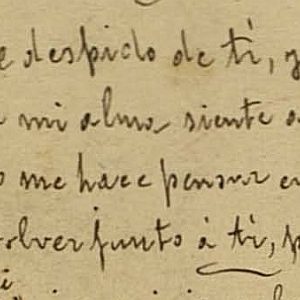 e despido de tí, y
mi alma siente a
o me hace pensar en
olver junto á tí, p